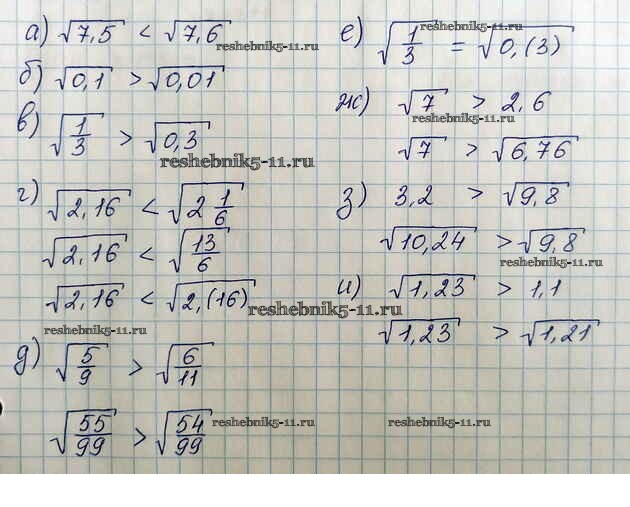 а) √7,5 < √7,6
reshebnik5-11.ru
б) √0,1 > √0,01
в) √1/3 > √0,3
reshebnik5-11.ru
г) √2,16 < √2 1/6
√2,16 < √13/6
√2,16 < √2,(16)
reshebnik5-11.ru
reshebnik5-11.ru
д) √5/9 > √6/11
√55/99 > √54/99
reshebnik5-11.ru
е) √1/3 = √0,(3)
reshebnik5-11.ru
ж) √7 > 2,6
reshebnik5-11.ru
√7 > √6,76
з) 3,2 > √9,8
√10,24 > √9,8
reshebnik5-11.ru
и) √1,23 > 1,1
√1,23 > √1,21
reshebnik5-11.ru